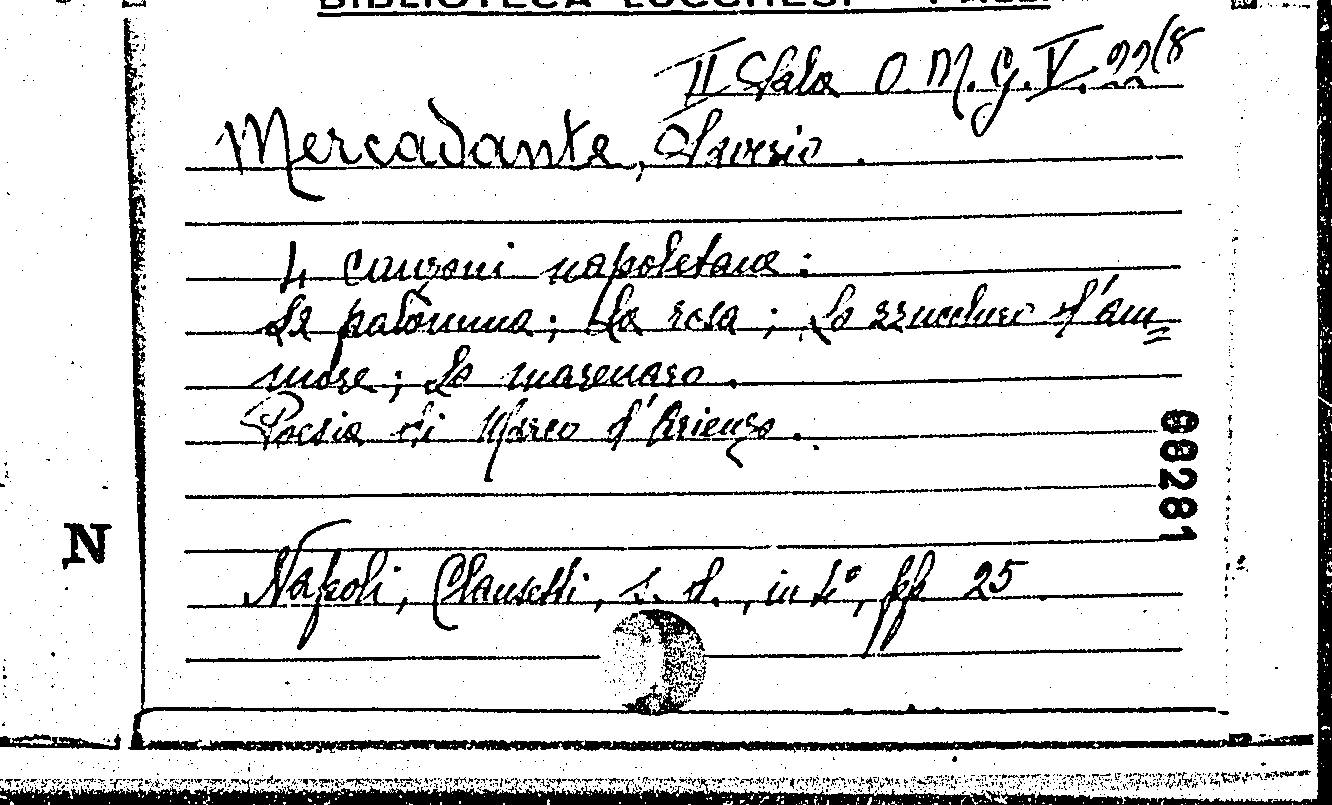 BIBLIOTECA LUCCHESI - PALLI
II Sala O. M. G. V. 22(8
Mercadante, Saverio.
4 canzoni napoletane:
La palomma; La rosa; Lo zzucchero d'am=
more; Lo marenaro.
Poesia di Marco d'Arienzo.
00281
N
Napoli, Clausetti, s. d., in 4°, pp 25.